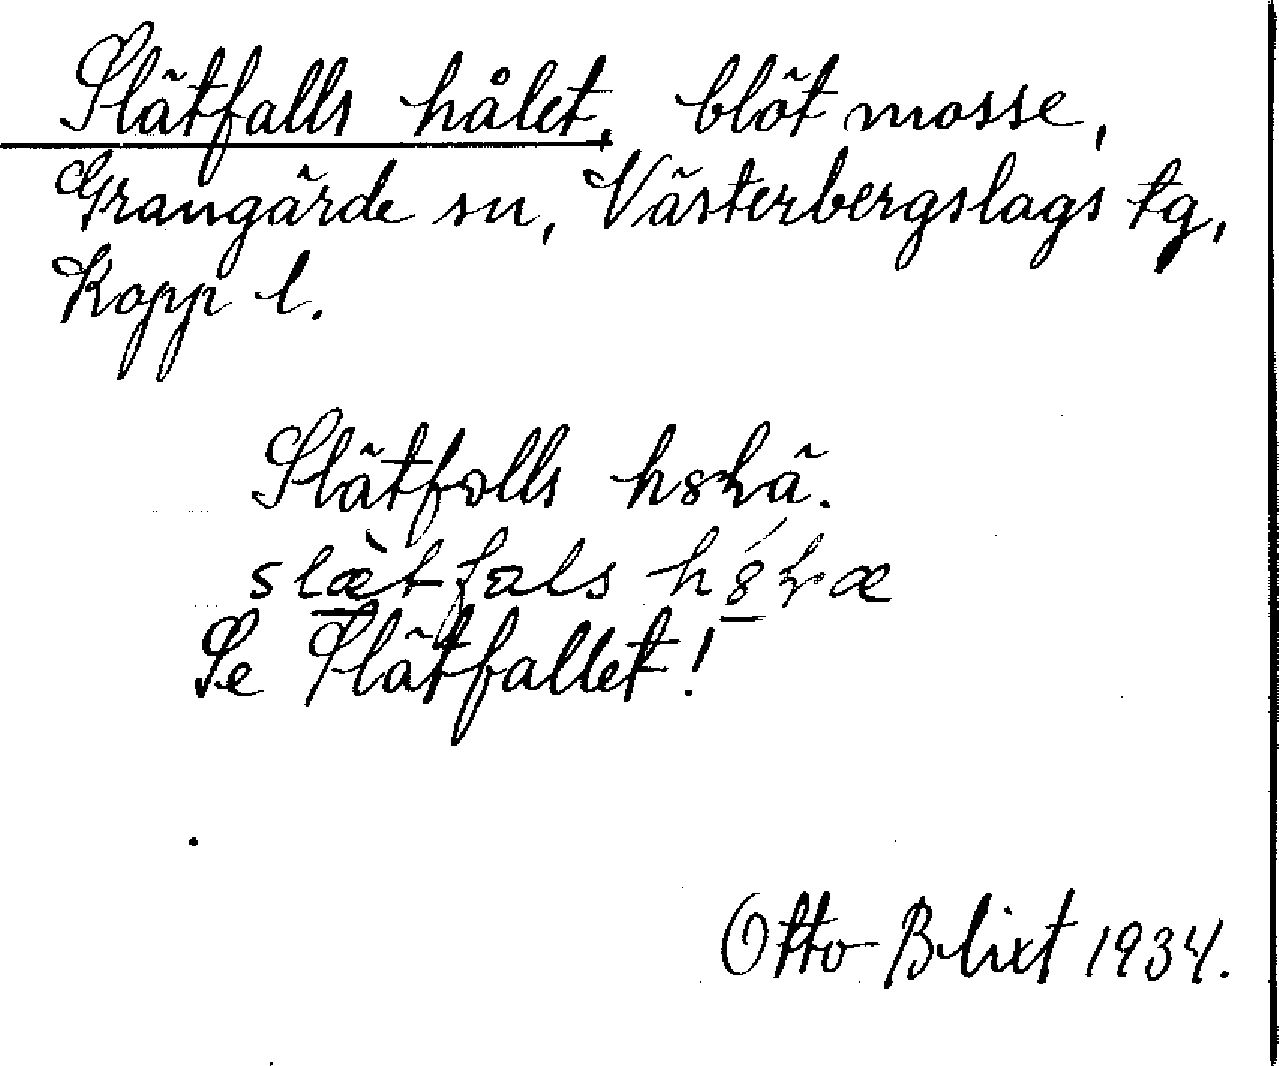 Slätfalls hålet, blöt mosse,
Grangärde sn, Västerbergslags tg,
Kopp l.
Slätfɷlls
slæ̀tfɷls
Se Slätfallet!
Otto Blixt 1934.